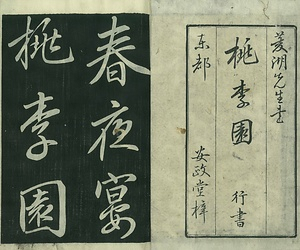 菱湖先生書
桃李園
行書
東都
安政堂梓
春夜宴
桃李園